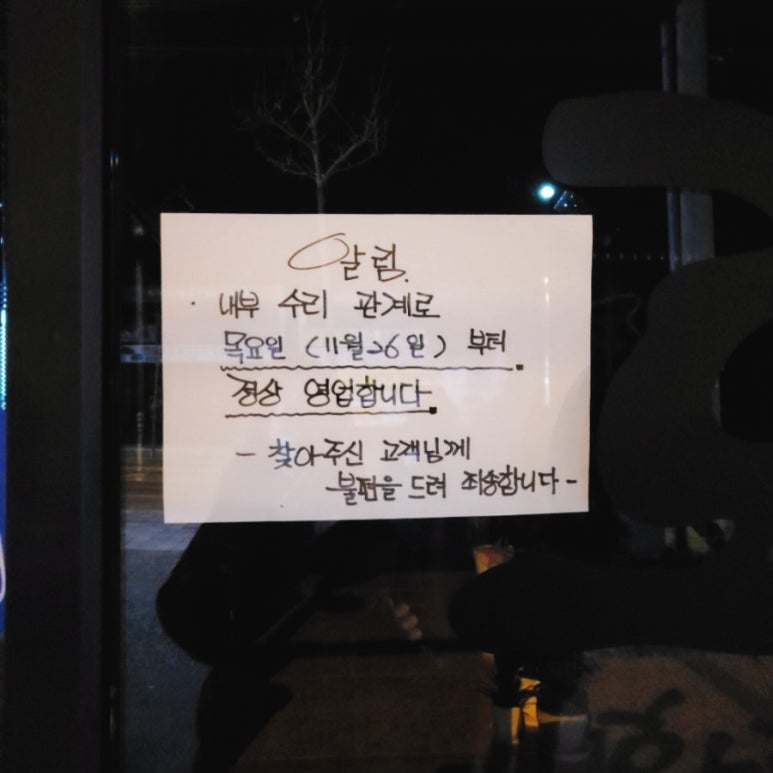 알림.
· 내부 수리 관계로
목요일 (11월 26일) 부터.
정상 영업합니다.
- 찾아주신 고객님께
불편을 드려 죄송합니다 -